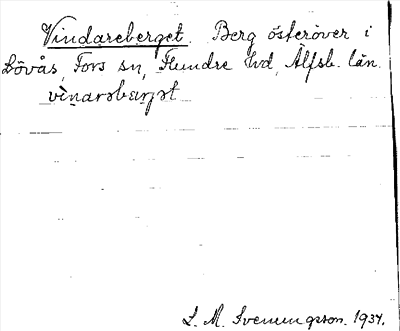 Vindareberget. Berg österöver i
Lövås, Fors sn, Flundre hd, Älfsb. län.
vìnarsbærjət
L. M. Svenungsson. 1934.